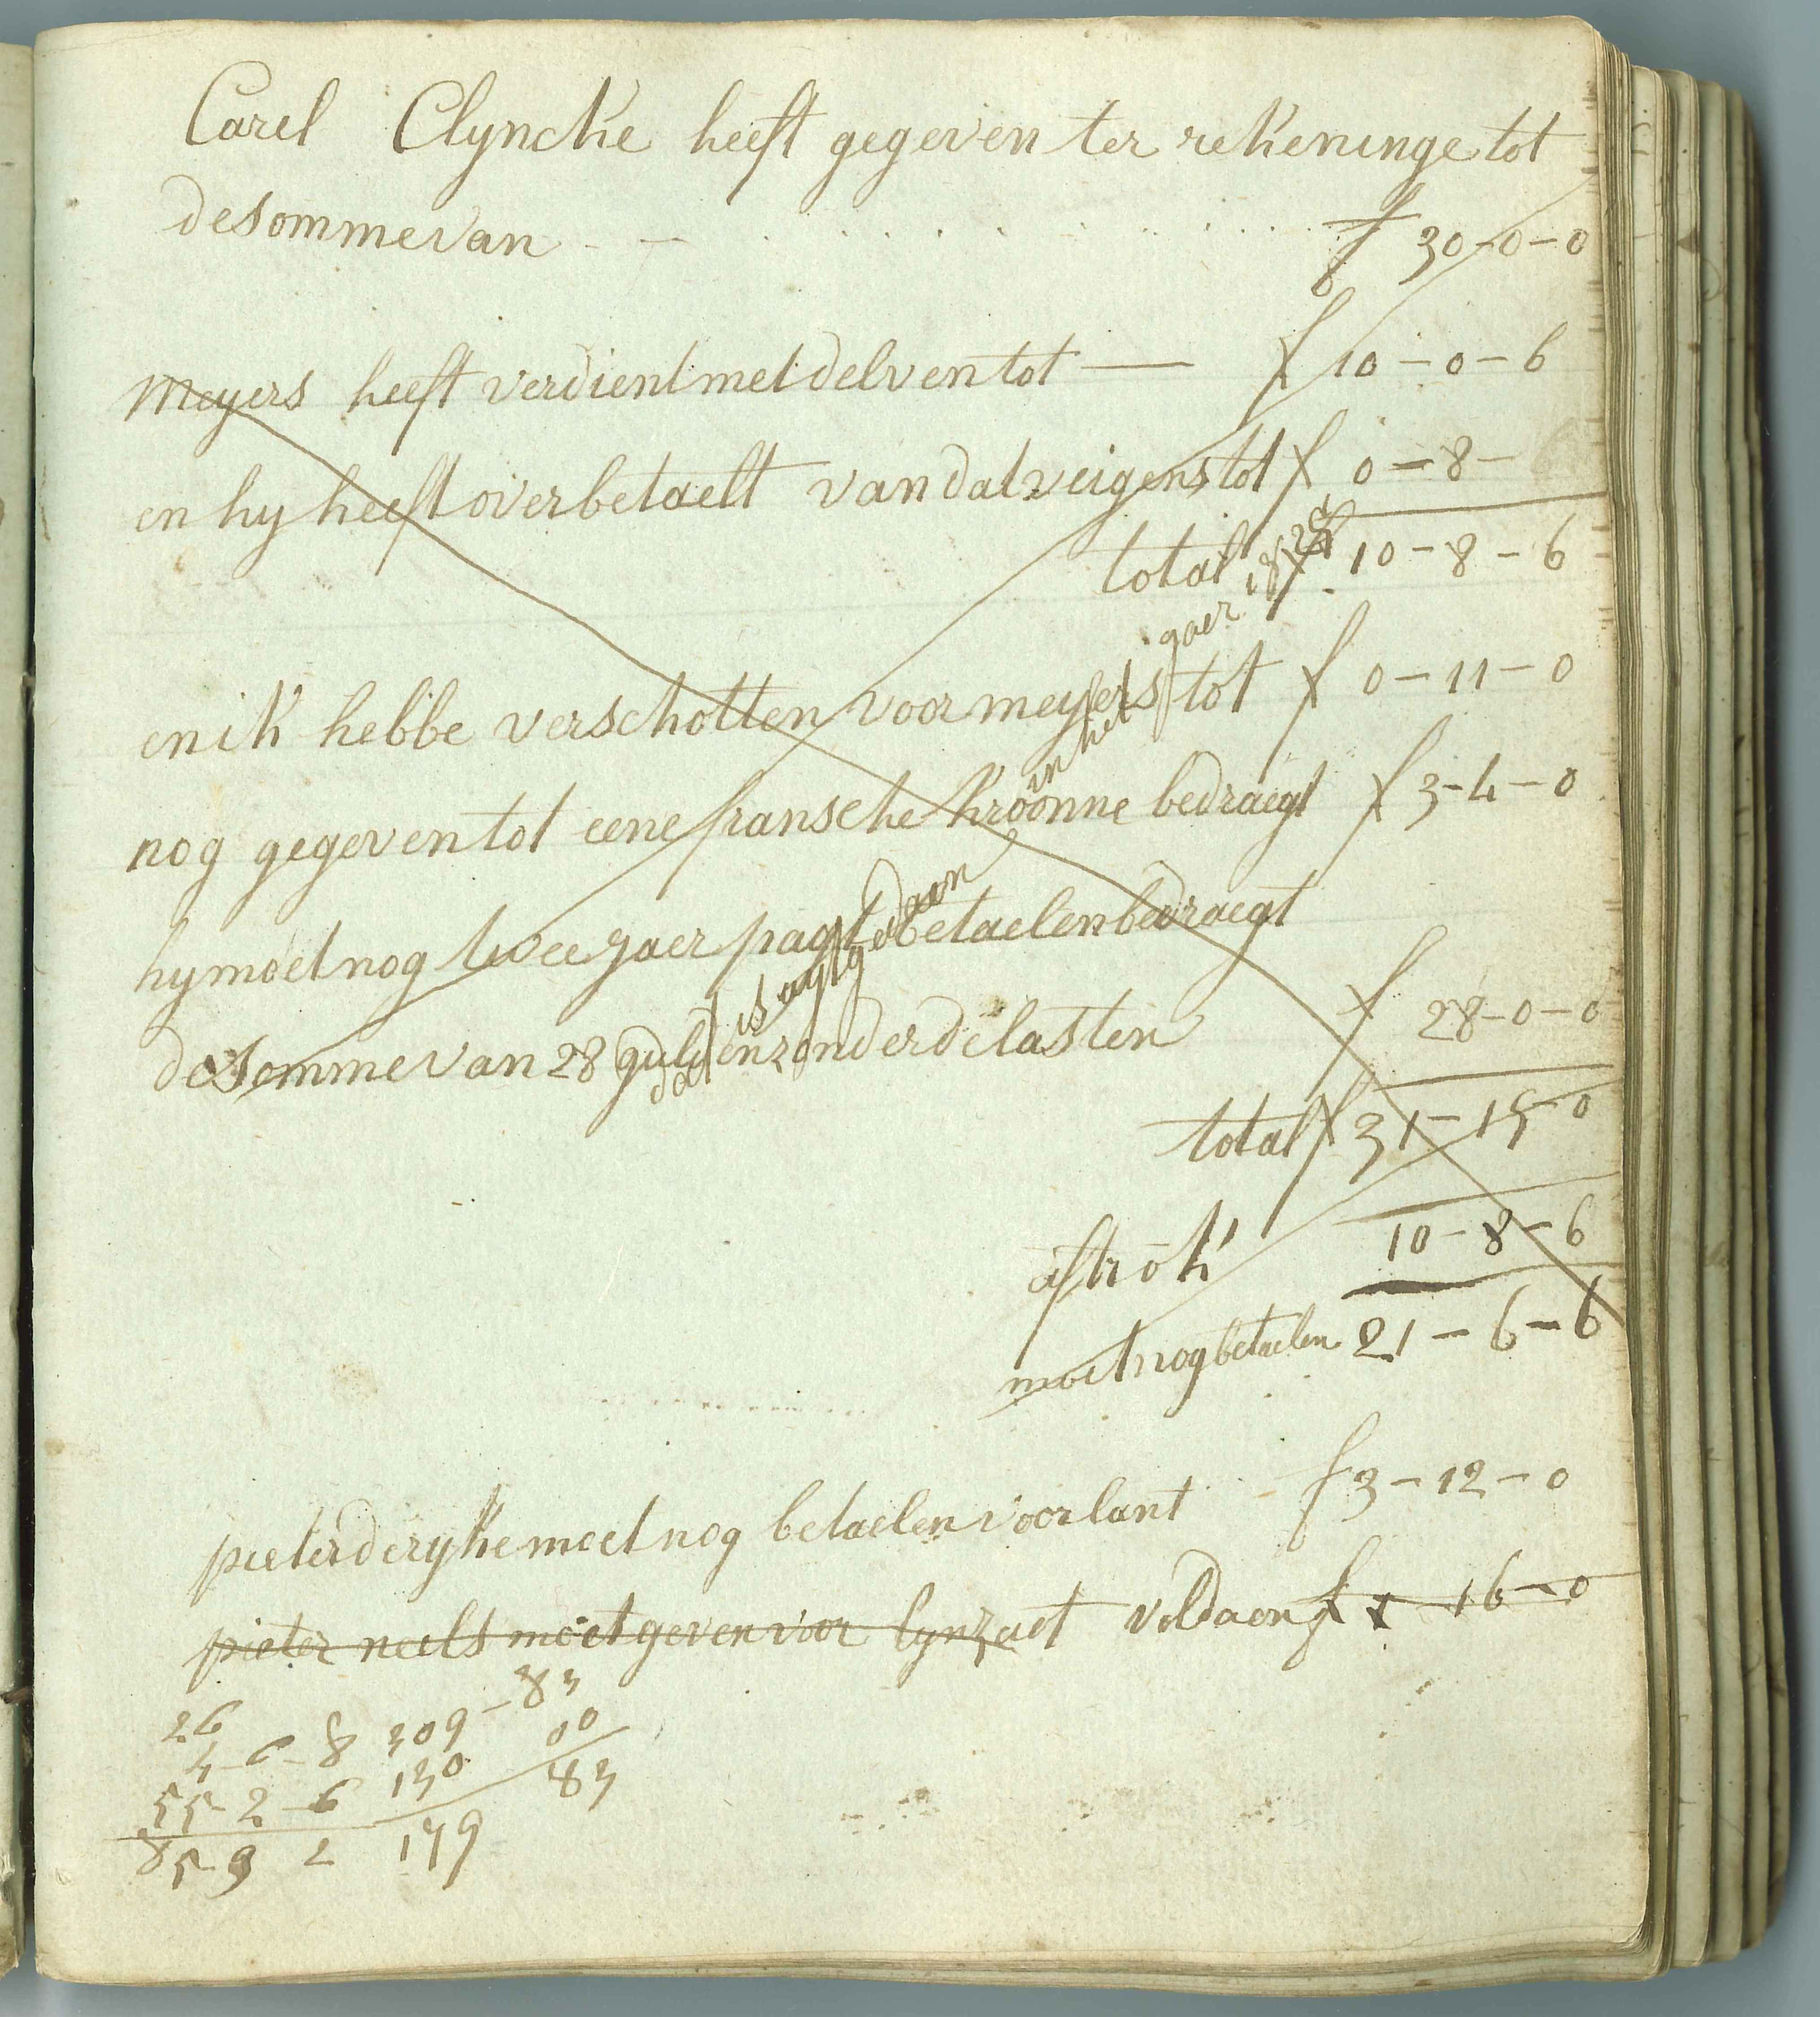 Carel Clyncke heeft gegeven ter rekeninge tot
de somme van - - . . . . . . . . . . f 30-0-0
Meyers heeft verdient met delven tot — f 10-0-6
en hy heeft overbetaelt van dat veigens tot f 0-8-
total f 10-8-6
en ik hebbe verschotten voor meyers tot f 0-11-0
nog gegeven tot eene fransche kroonne bedraegt f 3-4-0
hy moet nog twee jaer pagt betaelen bedraegt
de somme van 28 gulden zonder de lasten f 28-0-0
total f 31-15-0
aftrok 10-8-6
moet nog betaelen 21-6-6
dat is agtgedaan in het jaer
pieter de ryke moet nog betaelen voor lant f 3-12-0
pieter neels moet geven voor lynzaet voldaen f 1-16-0
26
4-6-8 309-83
55-2-6 130 00
85-9 2 179 83